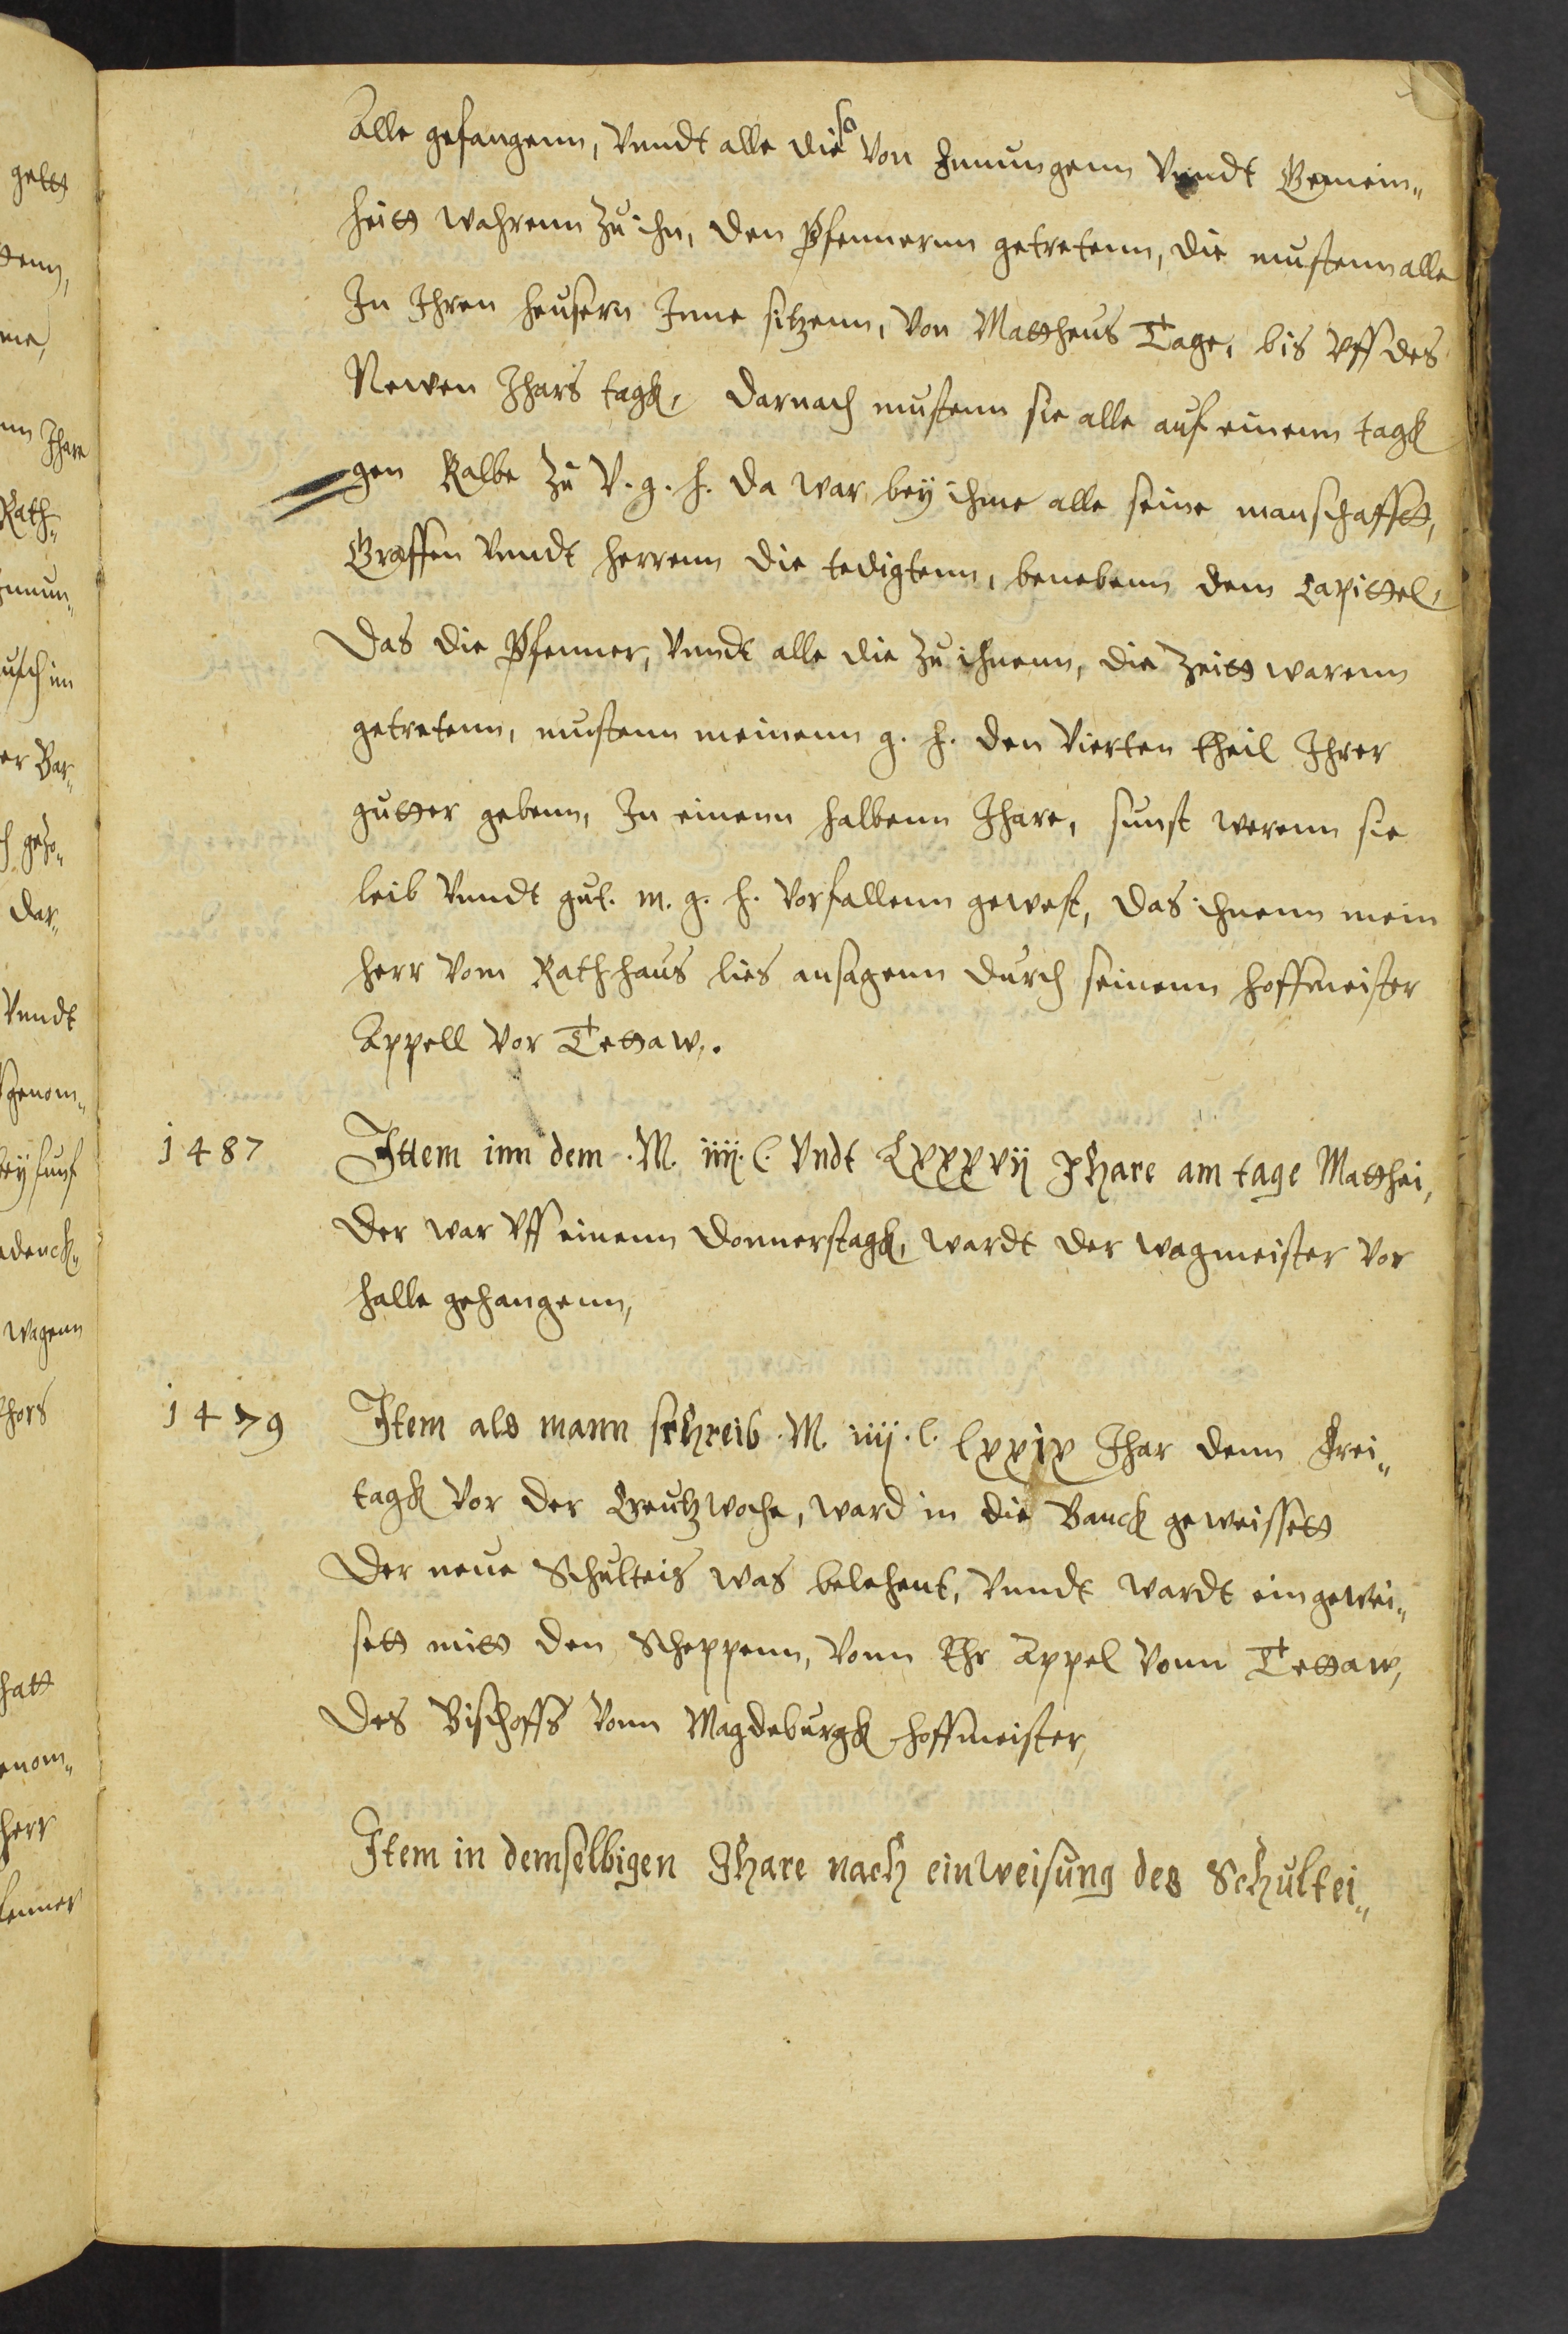 Alle gefangenn, vnndt alle die so von Jnnungenn vnndt Gemein„
heitt wahrenn zu ihn, den Pfennernn getretenn, die mustenn alle
In Ihren heusern Inne sitzenn, von Mattheus Tage, bis vff des
Newen Ihars tagk, darnach mustenn sie alle auf einenn tagk
gen Kalbe zu V. g. h. da war bey ihme alle seine manschafft,
Graffen vnndt herrenn die tedigtenn, benebenn dem Capittel,
Das die Pfenner, vnndt alle die zu ihnenn, die Zeitt warenn
getretenn, mustenn meinenn g. h. den vierten theil Ihrer
gutter gebenn, In einenn halbenn Ihare, sunst werenn sie
leib vnndt gut. m. g. h. vorfallenn gewest, das ihnenn mein
herr vom Rathhaus lies ansagenn durch seinenn hoffmeister
Appell vor Tettaw.
1487 Ittem inn dem .M. iiij. C. vndt Lxxxvij Jhare am tage Matthei,
Der war vff einenn Donnerstagk, wardt der wagmeister vor
halle gehangenn,
1479 Item als mann schreib .M. iiij. C. lxxix Ihar denn Frei„
tagk vor der Creutzwoche, ward in die Banck geweissett
Der neue Schulteis was belehent, vnndt wardt eingewei„
sett mitt den Scheppenn, vonn Ehr Appel vonn Tettaw,
Des Bischoffs vonn Magdeburgk hoffmeister,
Item in demselbigen Jhare nach einweisung des Schultei„
gett
Ihare
Rath„
vnndt
wagenn
hatt
herr